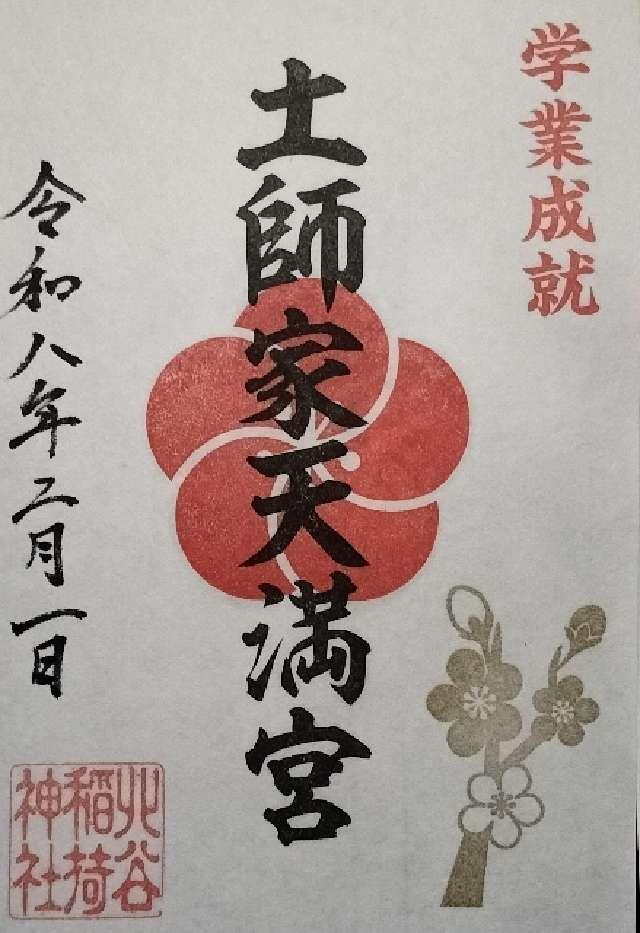 学業成就
土師家天満宮
令和八年二月一日
北谷
稲荷
神社